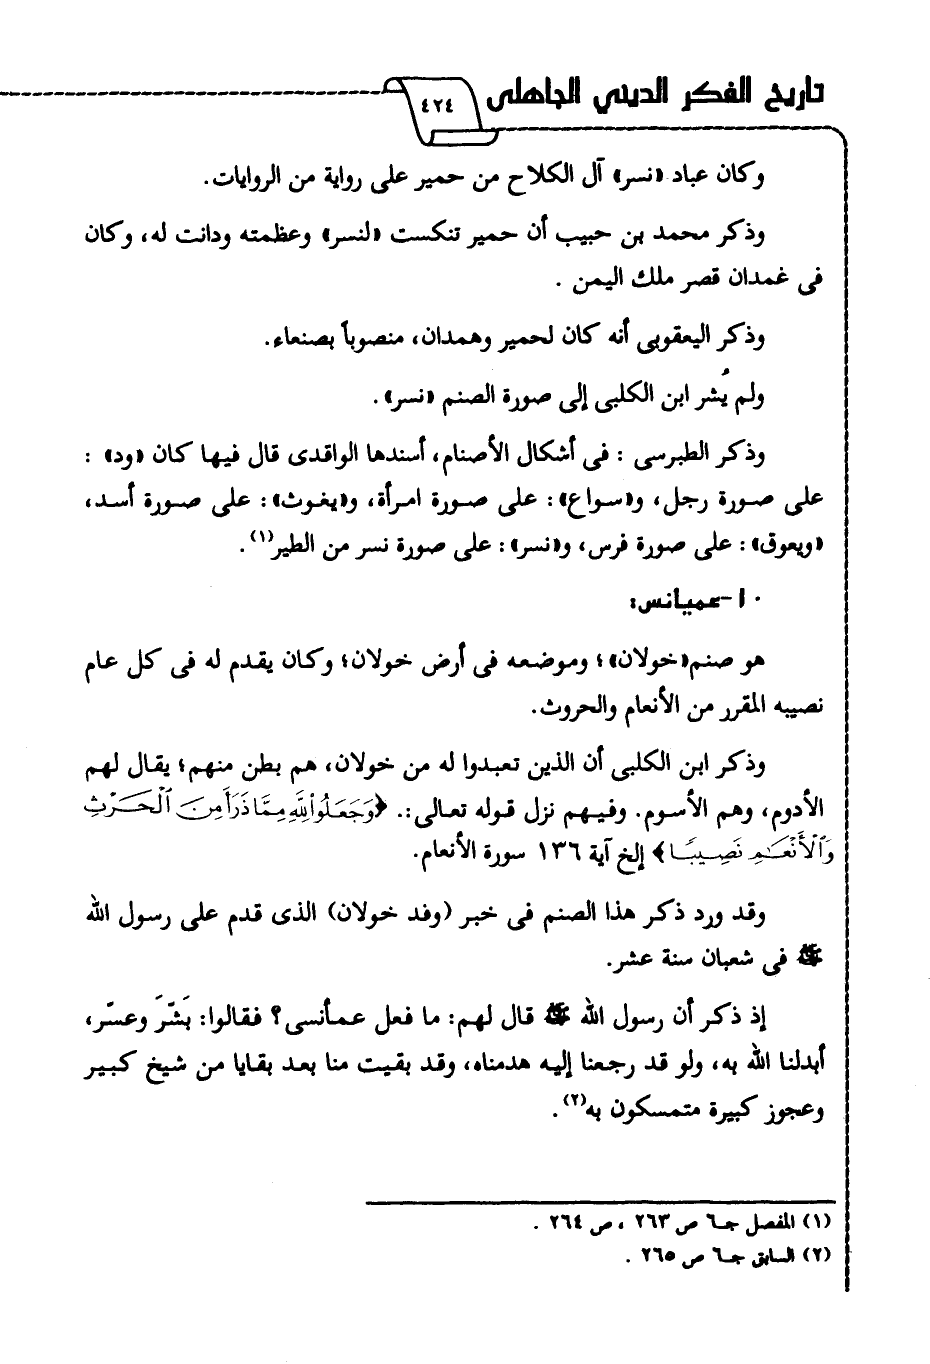 تاريخ الفكر الديني الجاهلى
٤٢٤
وكان عباد «نسر» آل الكلاح من حمير على رواية من الروايات.
وذكر محمد بن حبيب أن حمير تنكست «لنسر» وعظمته ودانت له، وكان
فى غمدان قصر ملك اليمن .
وذكر اليعقوبى أنه كان لحمير وهمدان، منصوباً بصنعاء.
ولم يُشر ابن الكلبى إلى صورة الصنم «نسر» .
وذكر الطبرسى : فى أشكال الأصنام، أسندها الواقدى قال فيها كان «ود» :
على صورة رجل، و«سواع» : على صورة امرأة، و«يغوث» : على صورة أسد،
«ويعوق» : على صورة فرس، و«نسر» : على صورة نسر من الطير(١).
١٠-عميانس:
هو صنم«خولان»؛ وموضعه فى أرض خولان؛ وكان يقدم له فى كل عام
نصيبه المقرر من الأنعام والحروث.
وذكر ابن الكلبى أن الذين تعبدوا له من خولان، هم بطن منهم؛ يقال لهم
الأدوم، وهم الأسوم. وفيهم نزل قوله تعالى:. ﴿وَجَعَلُوا لِلَّهِ مِمَّا ذَرَأَ مِنَ الْحَرْثِ
وَالْأَنْعَامِ نَصِيبًا﴾ إلخ آية ١٣٦ سورة الأنعام.
وقد ورد ذكر هذا الصنم فى خبر (وفد خولان) الذى قدم على رسول الله
ﷺ فى شعبان سنة عشر.
إذ ذكر أن رسول الله ﷺ قال لهم: ما فعل عمأنسى؟ فقالوا: بَشّرَ وعسّر،
أبدلنا الله به، ولو قد رجعنا إليه هدمناه، وقد بقيت منا بعد بقايا من شيخ كبير
وعجوز كبيرة متمسكون به(٢).
(١) المفصل جـ٦ ص ٢٦٣ ، ص ٢٦٤ .
(٢) السابق جـ٦ ص ٢٦٥ .